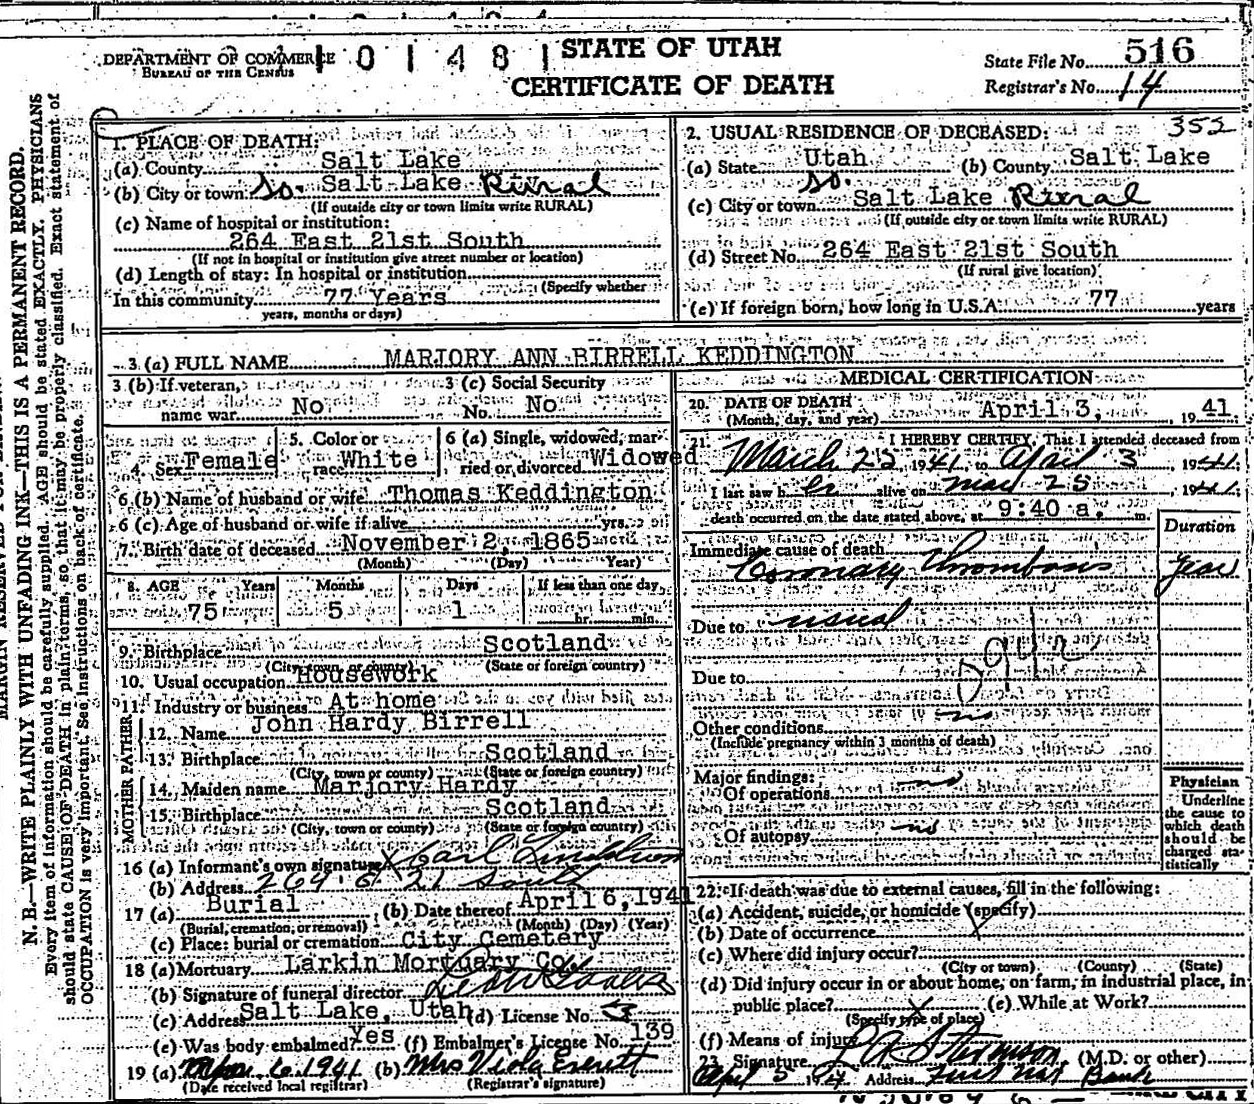 DEPARTMENT OF COMMERCE
BUREAU OF THE CENSUS
1 0 1 4 8 1
STATE OF UTAH
CERTIFICATE OF DEATH
State File No. 516
Registrar's No. 14
N. B.—WRITE PLAINLY WITH UNFADING INK—THIS IS A PERMANENT RECORD.
Every item of information should be carefully supplied. AGE should be stated EXACTLY. PHYSICIANS
should state CAUSE OF DEATH in plain terms, so that it may be properly classified. Exact statement of
OCCUPATION is very important. See instructions on back of certificate.
1. PLACE OF DEATH:
(a) County Salt Lake
(b) City or town So. Salt Lake Rural
(If outside city or town limits write RURAL)
(c) Name of hospital or institution:
264 East 21st South
(If not in hospital or institution give street number or location)
(d) Length of stay: In hospital or institution
(Specify whether
In this community 77 Years
years, months or days)
2. USUAL RESIDENCE OF DECEASED: 352
(a) State Utah (b) County Salt Lake
(c) City or town So. Salt Lake Rural
(If outside city or town limits write RURAL)
(d) Street No. 264 East 21st South
(If rural give location)
(e) If foreign born, how long in U.S.A. 77 years
3 (a) FULL NAME MARJORY ANN BIRRELL KEDDINGTON
3 (b) If veteran, name war No
3 (c) Social Security No. No
4. Sex Female
5. Color or race White
6 (a) Single, widowed, married or divorced Widowed
6 (b) Name of husband or wife Thomas Keddington
6 (c) Age of husband or wife if alive yrs.
7. Birth date of deceased November 2, 1865
(Month) (Day) Year)
8. AGE Years Months Days If less than one day
75 5 1 hr. min.
9. Birthplace Scotland
(City, town, or county) (State or foreign country)
10. Usual occupation Housework
11. Industry or business At home
FATHER
12. Name John Hardy Birrell
13. Birthplace Scotland
(City, town or county) (State or foreign country)
MOTHER
14. Maiden name Marjory Hardy
15. Birthplace Scotland
(City, town or county) (State or foreign country)
16 (a) Informant's own signature X Carl
(b) Address 264 E 21 South
17 (a) Burial (b) Date thereof April 6, 1941
(Burial, cremation, or removal) (Month) (Day) (Year)
(c) Place: burial or cremation City Cemetery
18 (a) Mortuary Larkin Mortuary Co.
(b) Signature of funeral director
(c) Address Salt Lake, Utah (d) License No.
(e) Was body embalmed? Yes (f) Embalmer's License No. 139
19 (a) 6 1941 (b) Mrs Viola Everett
(Date received local registrar) (Registrar's signature)
MEDICAL CERTIFICATION
20. DATE OF DEATH
(Month, day, and year) April 3, 1941
21. I HEREBY CERTIFY, That I attended deceased from
March 22, 1941 to April 3, 1941
I last saw her alive on Mar 25, 1941
death occurred on the date stated above, at 9:40 a. m.
Duration
Immediate cause of death
Coronary Thrombosis year
Due to usual
Due to
94
Other conditions no
(Include pregnancy within 3 months of death)
Major findings:
Of operations no
Of autopsy no
Physician
Underline
the cause to
which death
should be
charged sta-
tistically
22. If death was due to external causes, fill in the following:
(a) Accident, suicide, or homicide (specify)
(b) Date of occurrence
(c) Where did injury occur?
(City or town) (County) (State)
(d) Did injury occur in or about home, on farm, in industrial place, in
public place? (e) While at Work?
(Specify type of place)
(f) Means of injury
23. Signature (M.D. or other)
April 5 Address First Nat Bank